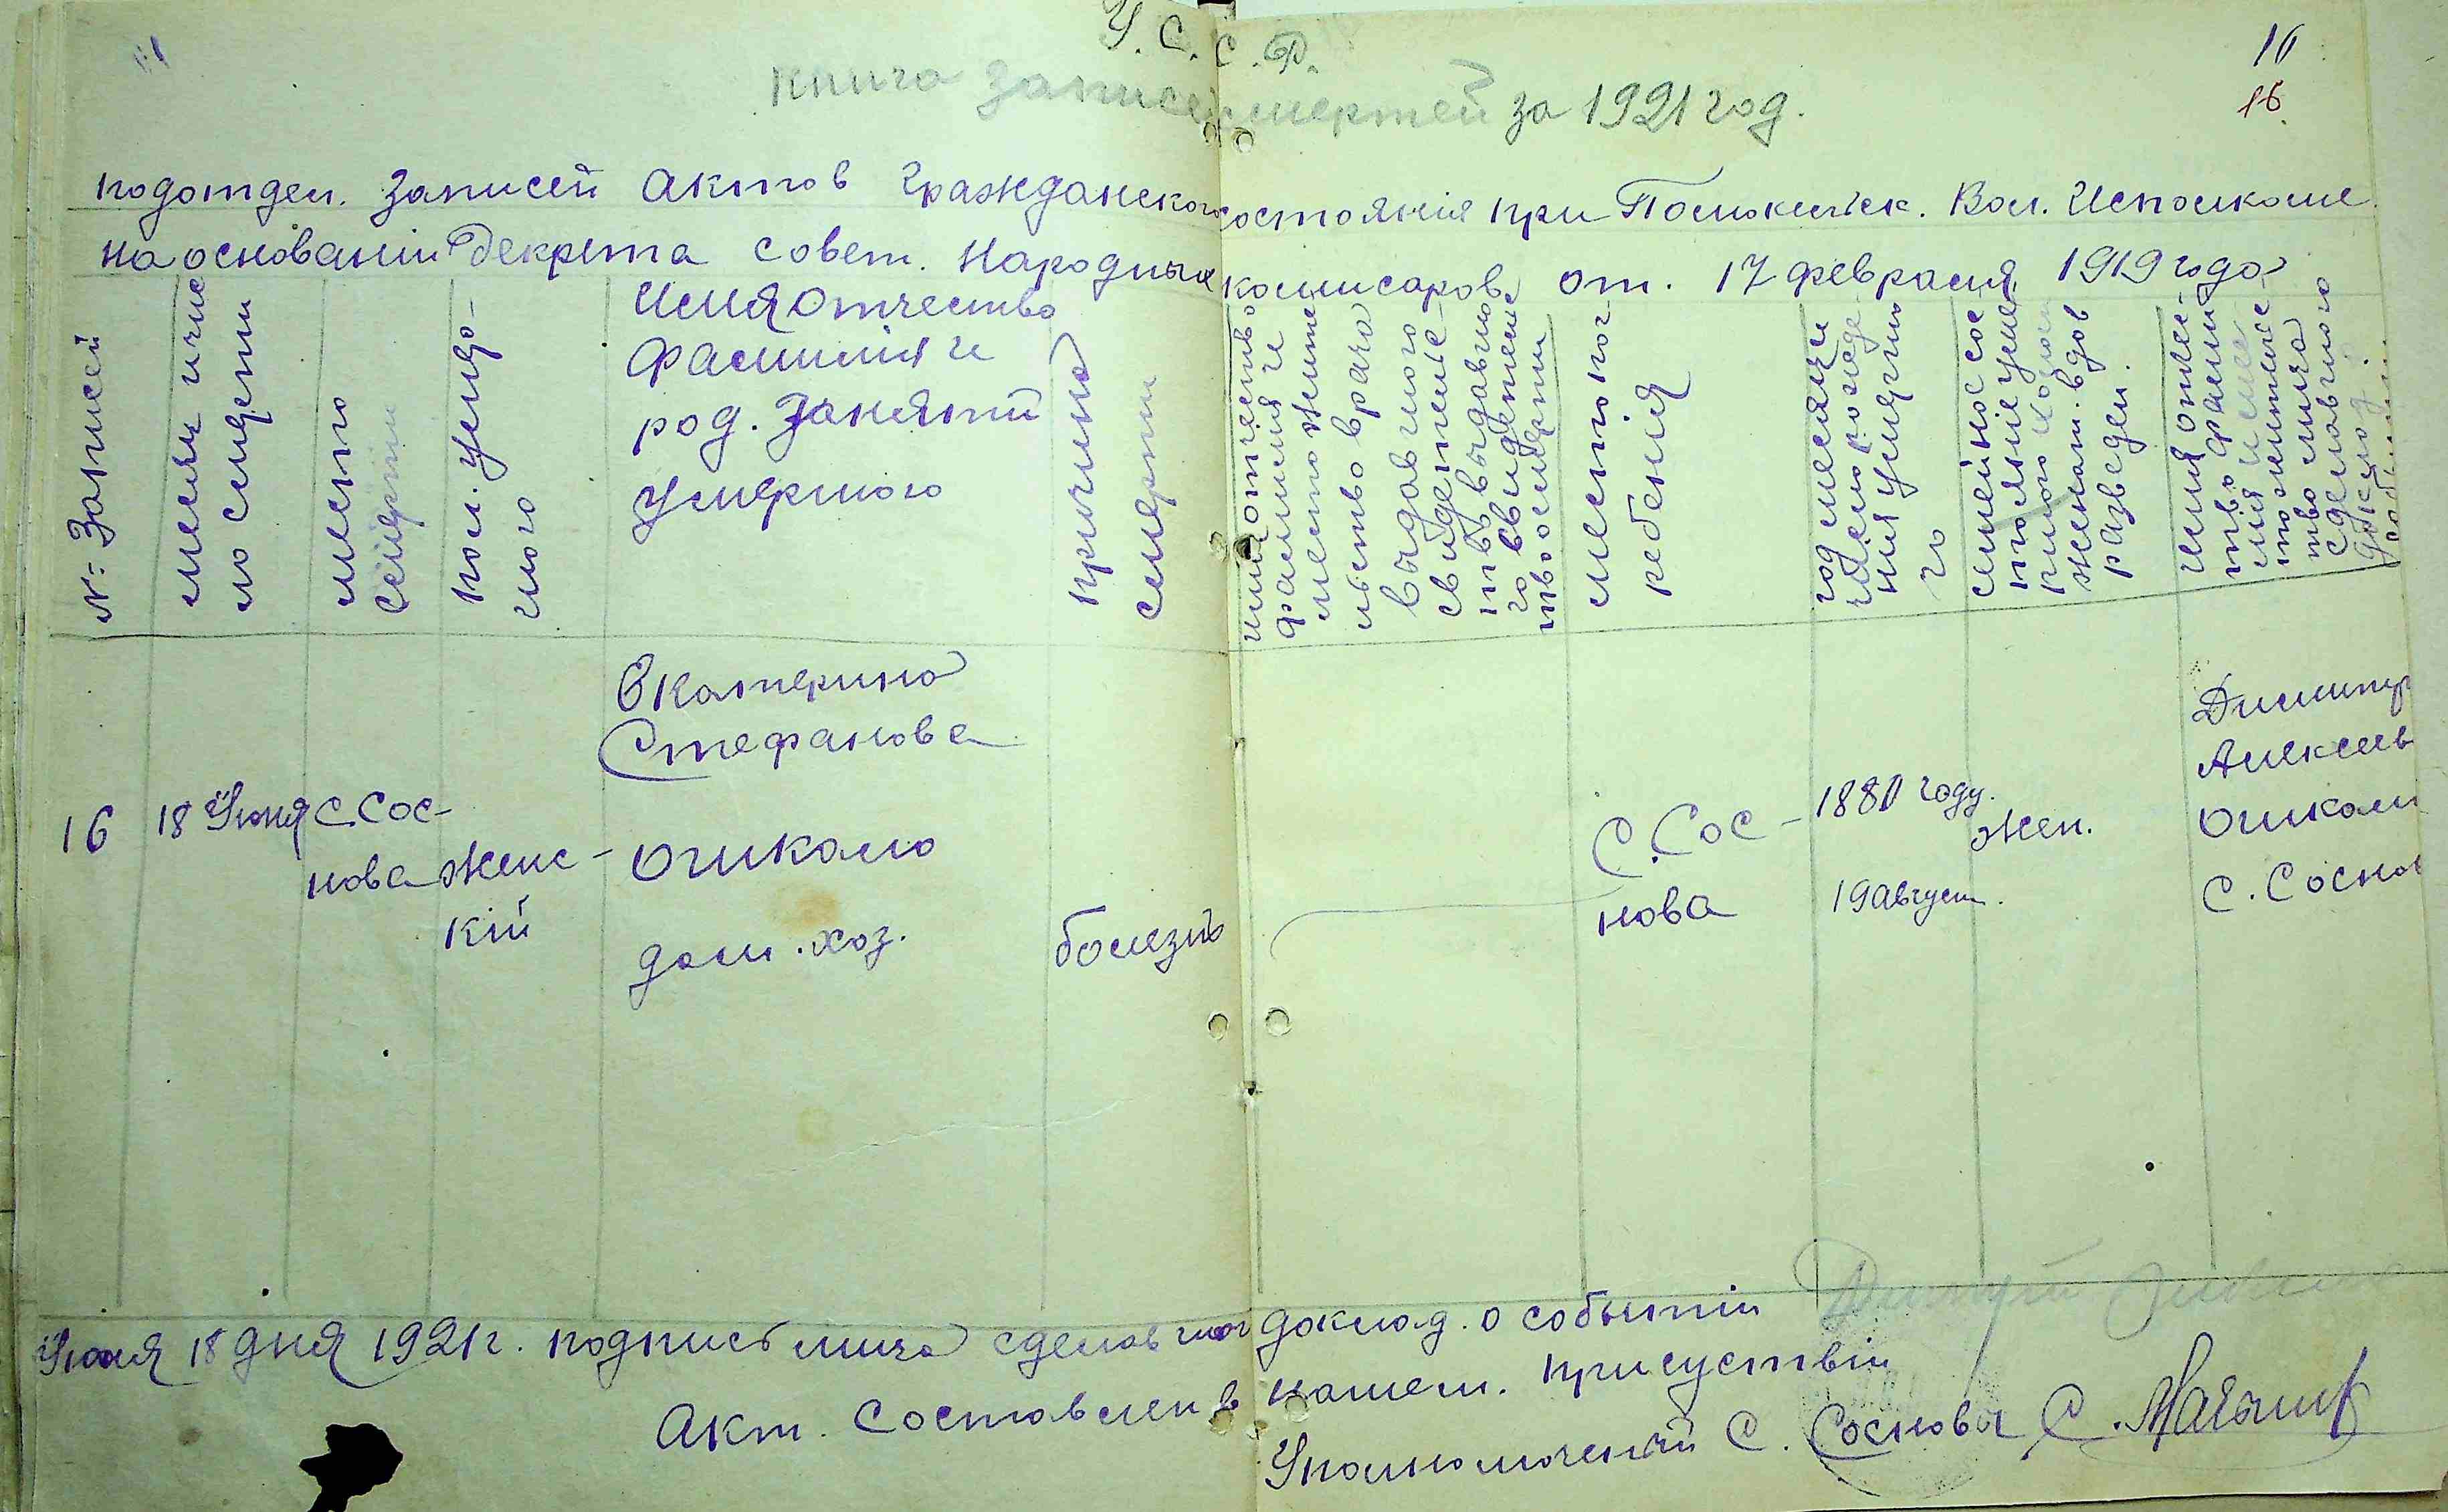 У.С.С.Р.
16
16
книга записей смертей за 1921 год.
подотдел. записей актов гражданского состоянія при Вол. Исполкоме
на основаніи Декрета Совет. Народных комисаров от. 17 февраля 1919 года
№: Записей
месяц и число смерти
место смерти
пол. умершого
Имя Отчество
Фамилия и
род. Занятій
Умершого
причина
смерти
имя отчество
фамилия и
место жите
льство врача
выдавшого
свидетеле
тво выдавшо
го свидетеле
тво о смерти
место рог
ребенія
год месяц и
число рожде
ния умершо
го
семейное сос
тояніе умер
женат. вдов
развeден.
имя отче-
тво фами
лия и мес
то житите
тво лица
сделавшого
доклад.
16
18 Июня
С. Сос-
нова
женс-
кій
Екатерина
Стефановa
Ошкало
дом. хоз.
болезнь
С. Сос-
нова
1880 году.
19 август.
жен.
Димитр
Алексеев
Ошкало
С. Соснов
Июня 18 дня 1921 г. подпись лица сделавшого доклад. о событіи
Акт. Составлен в нашем. присуствіи
Уполномоченый С. Соснова С.